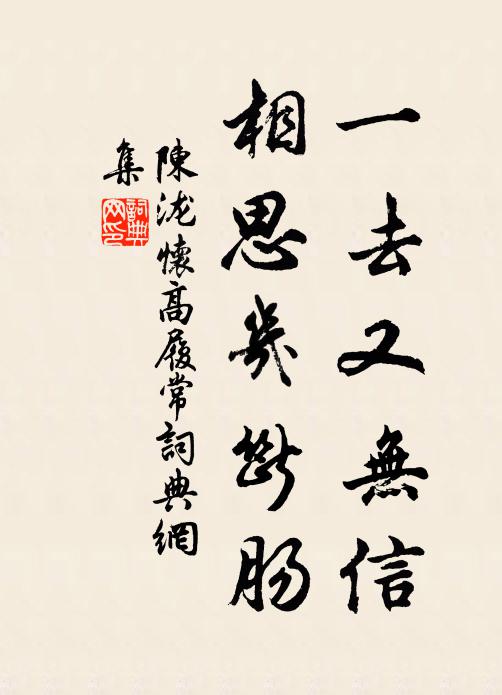 一去又無信
相思幾斷肠
陳泷懷高履常詞典網
集
詞典網印